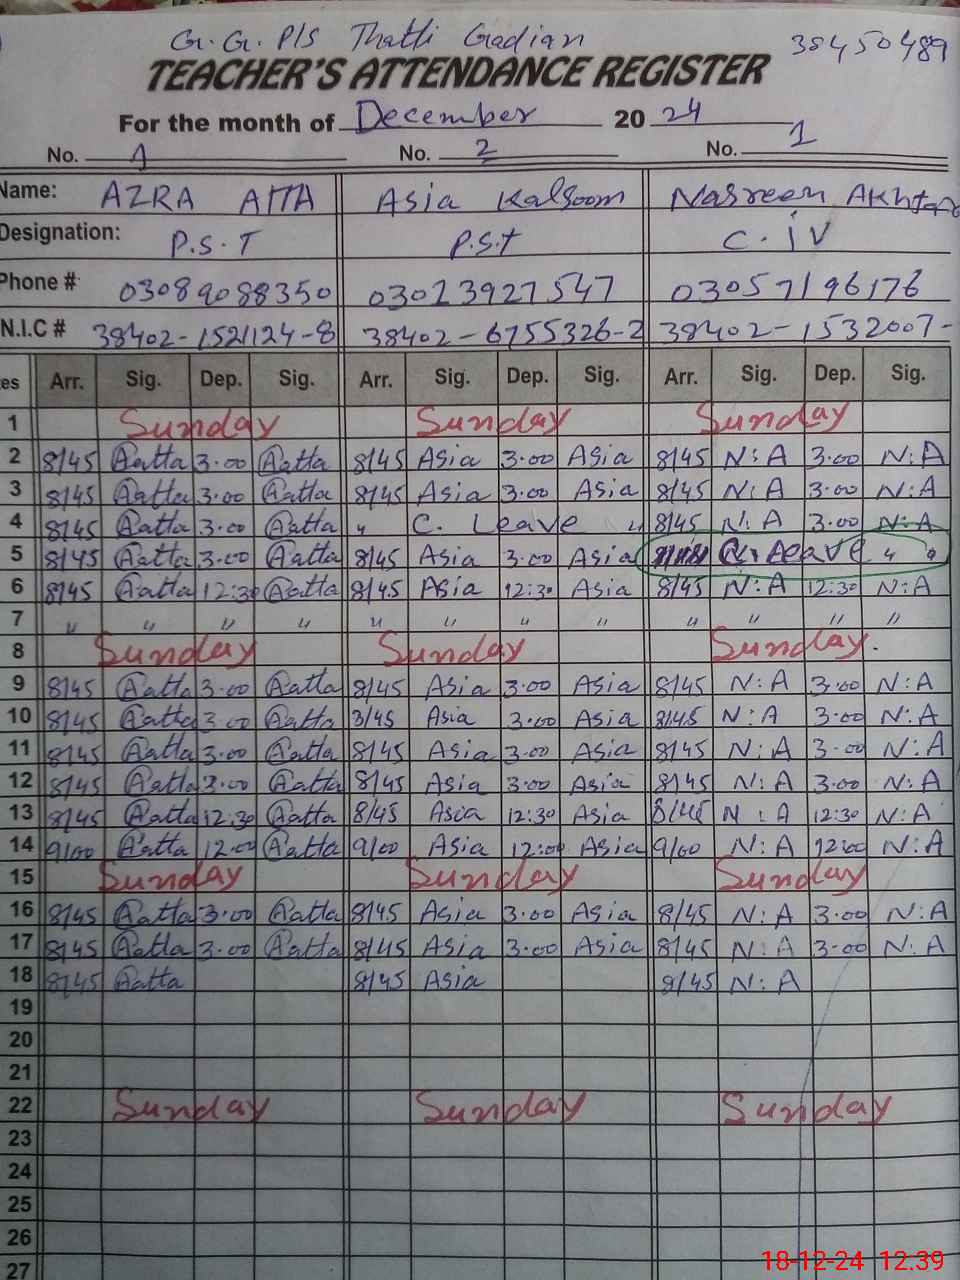 G. G. P/S Thatti Gadian 38450489
TEACHER'S ATTENDANCE REGISTER
For the month of December 20 24
No. 1 No. 2 No. 1
Name: AZRA ATTA Asia Kalsoom Nasreen Akhtar
Designation: P.S.T P.S.T C. iv
Phone # 03089088350 03023927547 03057196176
N.I.C # 38402-1521124-8 38402-6755326-2 38402-1532007-
es Arr. Sig. Dep. Sig. Arr. Sig. Dep. Sig. Arr. Sig. Dep. Sig.
1 Sunday Sunday Sunday
2 8/45 Aatta 3.00 Aatta 8/45 Asia 3.00 Asia 8/45 N:A 3.00 N:A
3 8/45 Aatta 3.00 Aatta 8/45 Asia 3.00 Asia 8/45 N:A 3.00 N:A
4 8/45 Aatta 3.00 Aatta " C. Leave " 8/45 N:A 3.00 N:A
5 8/45 Aatta 3.00 Aatta 8/45 Asia 3.00 Asia C. Leave " "
6 8/45 Aatta 12:30 Aatta 8/45 Asia 12:30 Asia 8/45 N:A 12:30 N:A
7 " " " " " " " " " " " "
8 Sunday Sunday Sunday.
9 8/45 Aatta 3.00 Aatta 8/45 Asia 3.00 Asia 8/45 N:A 3.00 N:A
10 8/45 Aatta 3.00 Aatta 8/45 Asia 3.00 Asia 8/45 N:A 3.00 N:A
11 8/45 Aatta 3.00 Aatta 8/45 Asia 3.00 Asia 8/45 N:A 3.00 N:A
12 8/45 Aatta 3.00 Aatta 8/45 Asia 3.00 Asia 8/45 N:A 3.00 N:A
13 8/45 Aatta 12:30 Aatta 8/45 Asia 12:30 Asia 8/45 N:A 12:30 N:A
14 9/00 Aatta 12:00 Aatta 9/00 Asia 12:00 Asia 9/00 N:A 12:00 N:A
15 Sunday Sunday Sunday
16 8/45 Aatta 3.00 Aatta 8/45 Asia 3.00 Asia 8/45 N:A 3.00 N:A
17 8/45 Aatta 3.00 Aatta 8/45 Asia 3.00 Asia 8/45 N:A 3.00 N:A
18 8/45 Aatta 8/45 Asia 8/45 N:A
19
20
21
22 Sunday Sunday Sunday
23
24
25
26
27
18-12-24 12.39